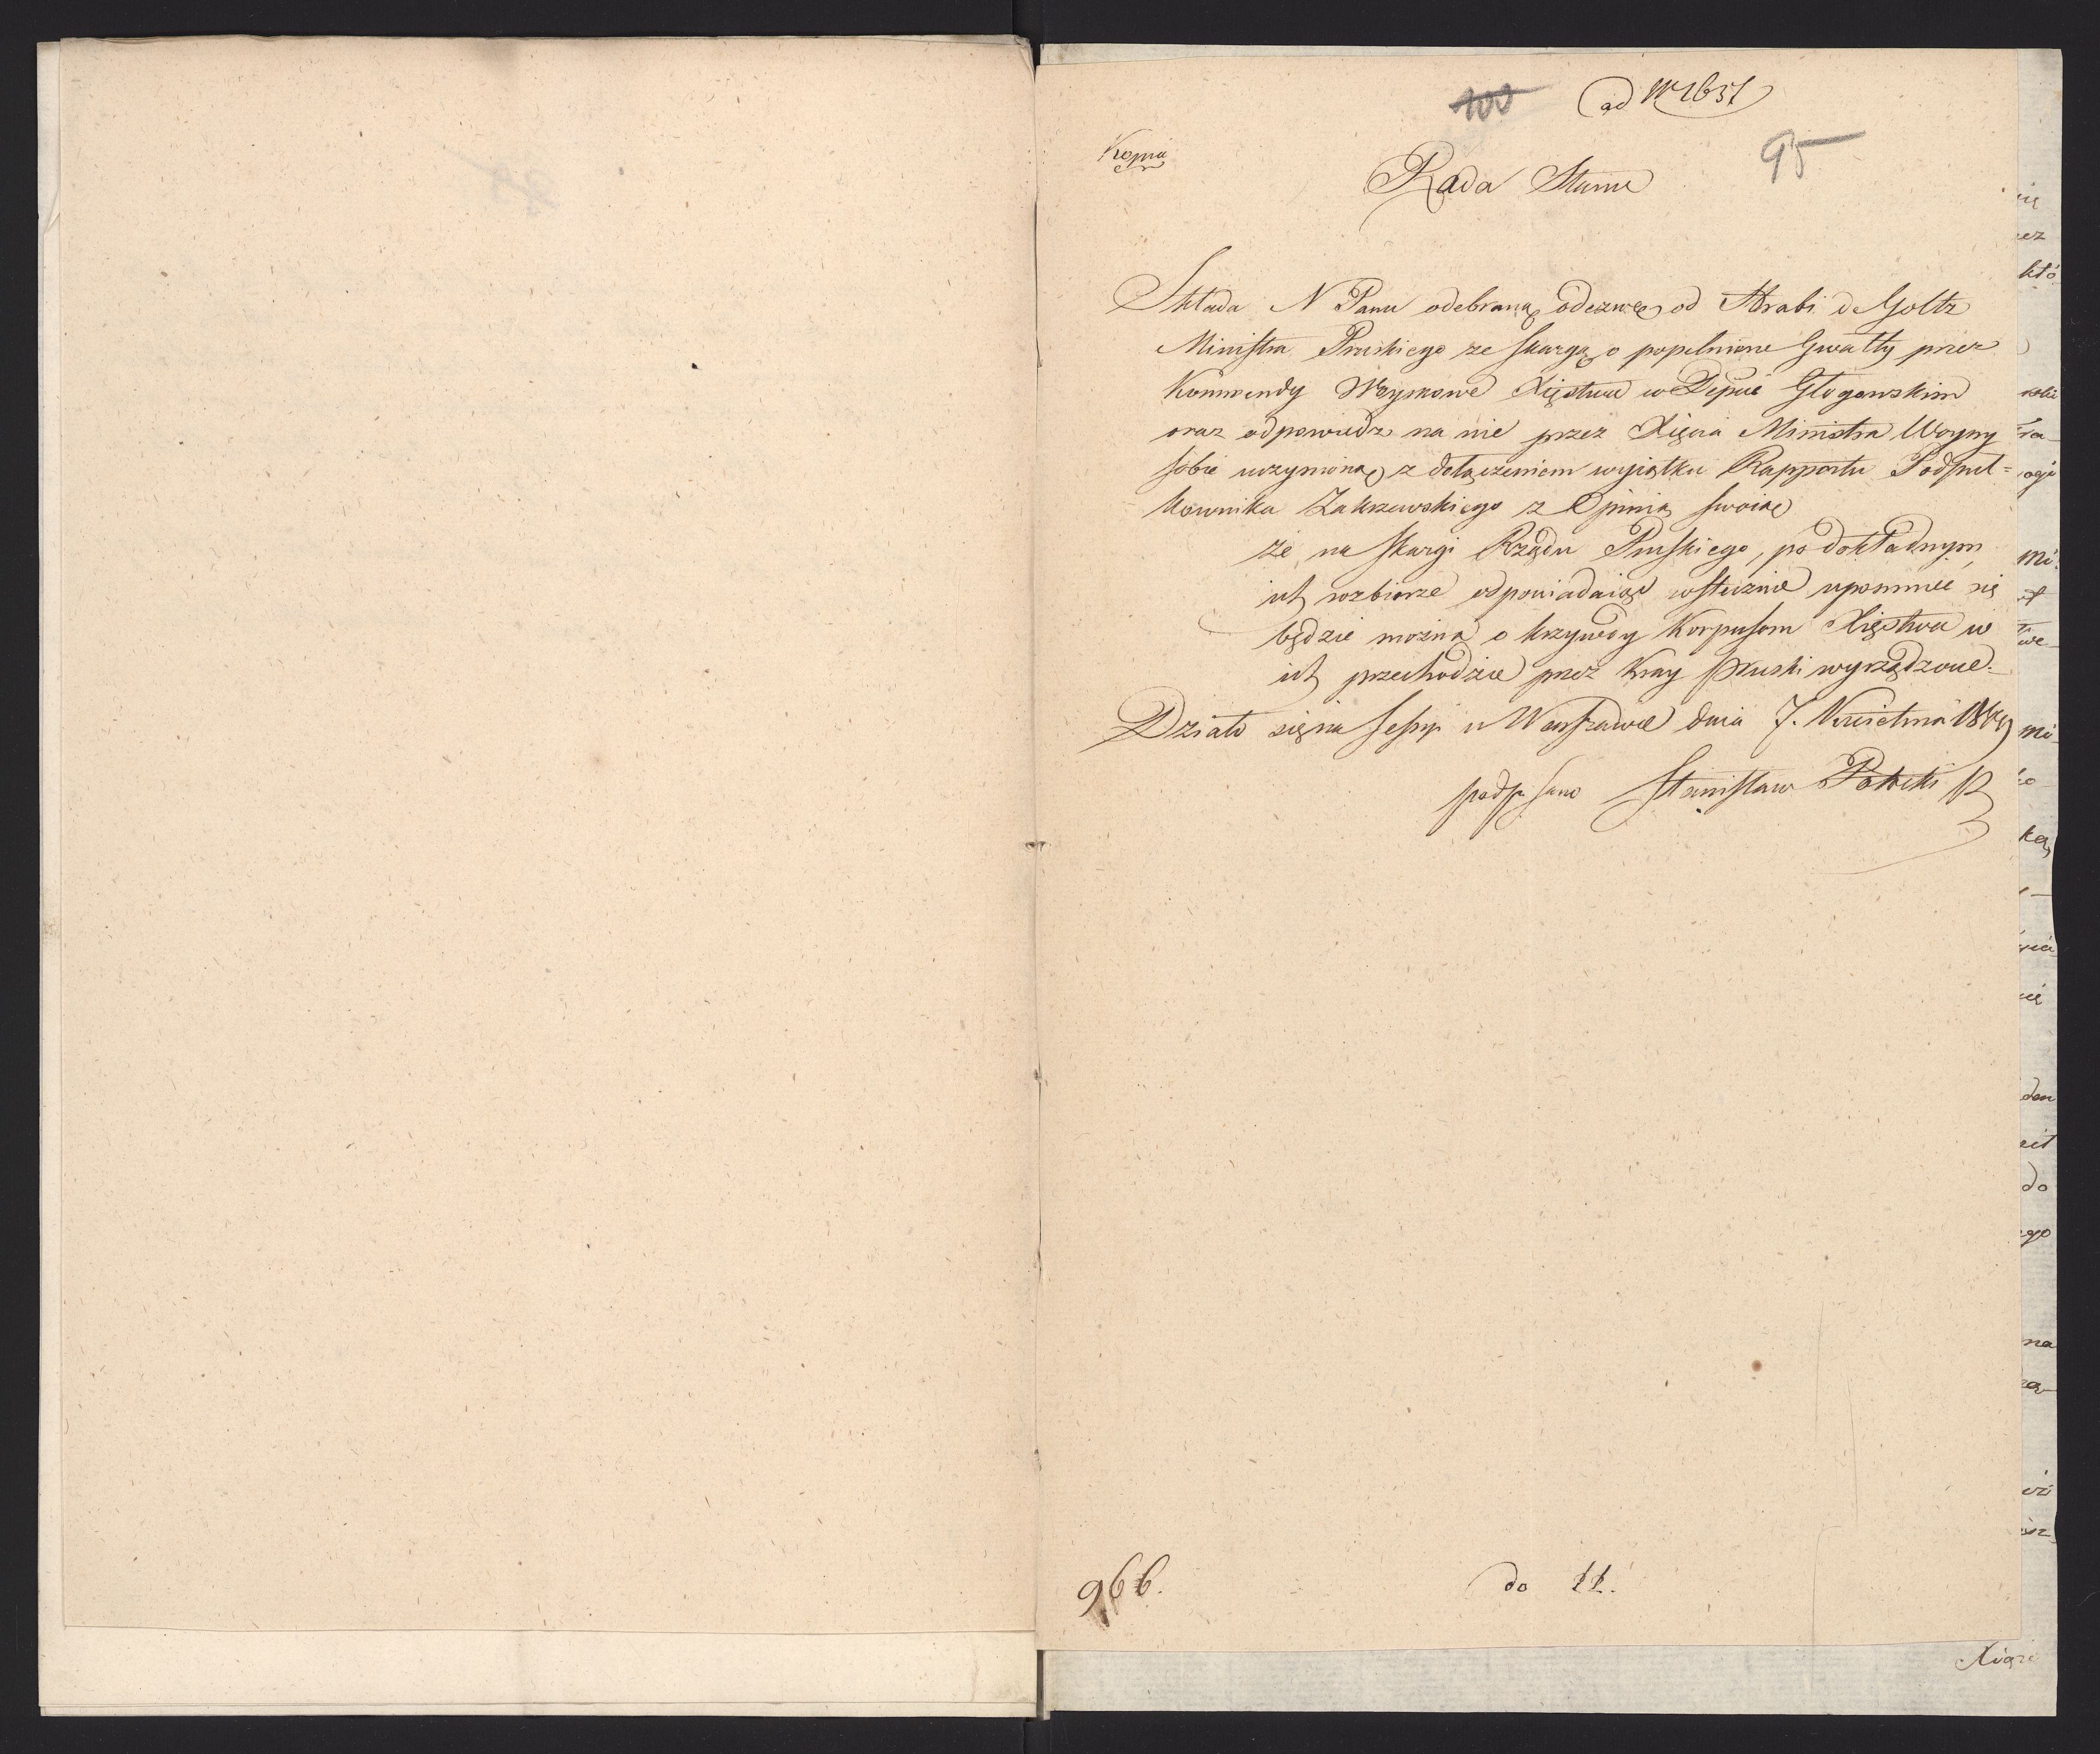 100 ad Nr 1651
Kopia
95
Rada Stanu
Składa N Panu odebraną odezwę od Hrabi de Goltz
Ministra Pruskiego ze skargą o popełnione Gwałty przez
Kommendy Woyskowe Xięstwa w Depcie Głogowskim
oraz odpowiedz na nie przez Xięcia Ministra Woyny
sobie uczynioną z dołączeniem wyiątku Rapportu Podpuł=
kownika Zakrzewskiego z Opinią swoią
że na skargi Rządu Pruskiego, po dokładnym
ich rozbiorze odpowiadaiąc wstecznie upomnieć się
będzie można o krzywdy Korpusom Xięstwa w
ich przechodzie przez Kray pruski wyrządzone.
Działo się na Sessyi w Warszawie dnia 7. Kwietnia
podpisano Stanisław Potocki P
966.
do 11.